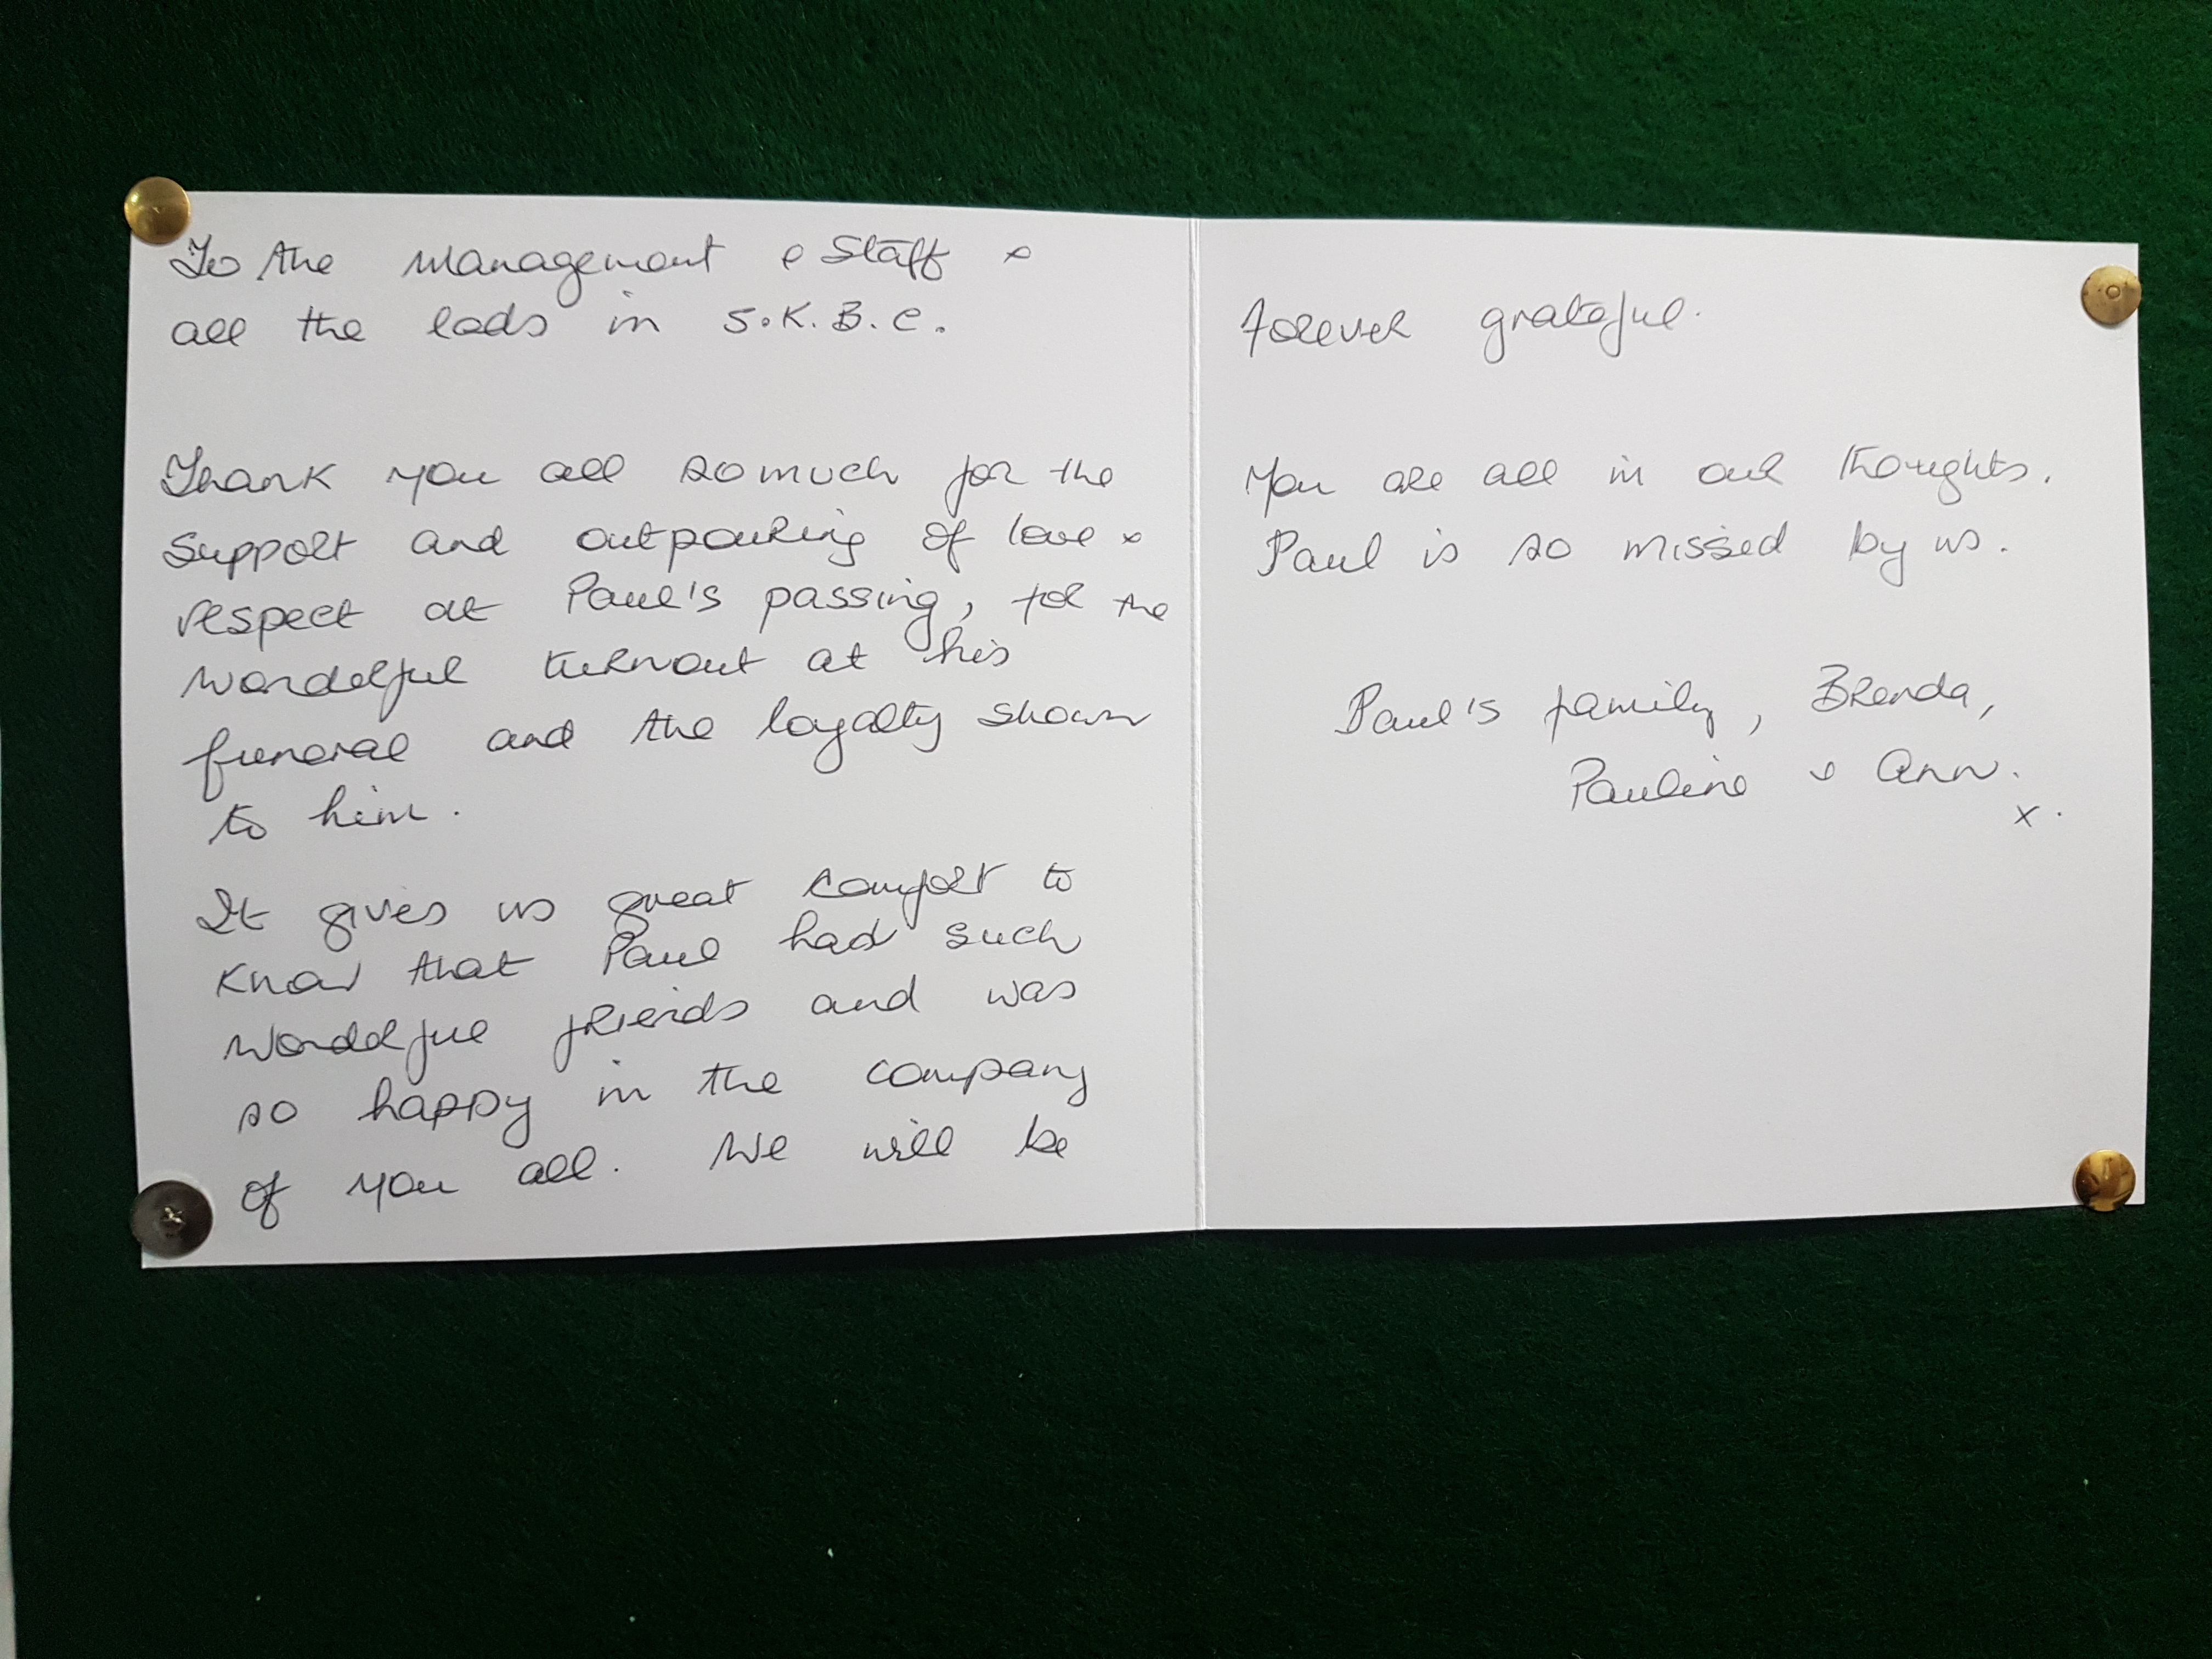 To the Management & Staff &
all the lads in S.K.B.C.
Thank you all so much for the
Support and outpouring of love &
respect at Paul's passing, for the
wonderful turnout at his
funeral and the loyalty shown
to him.
It gives us great comfort to
know that Paul had such
wonderful friends and was
so happy in the company
of you all. We will be
forever grateful.
You are all in our thoughts.
Paul is so missed by us.
Paul's family, Brenda,
Pauline & Ann.
x.